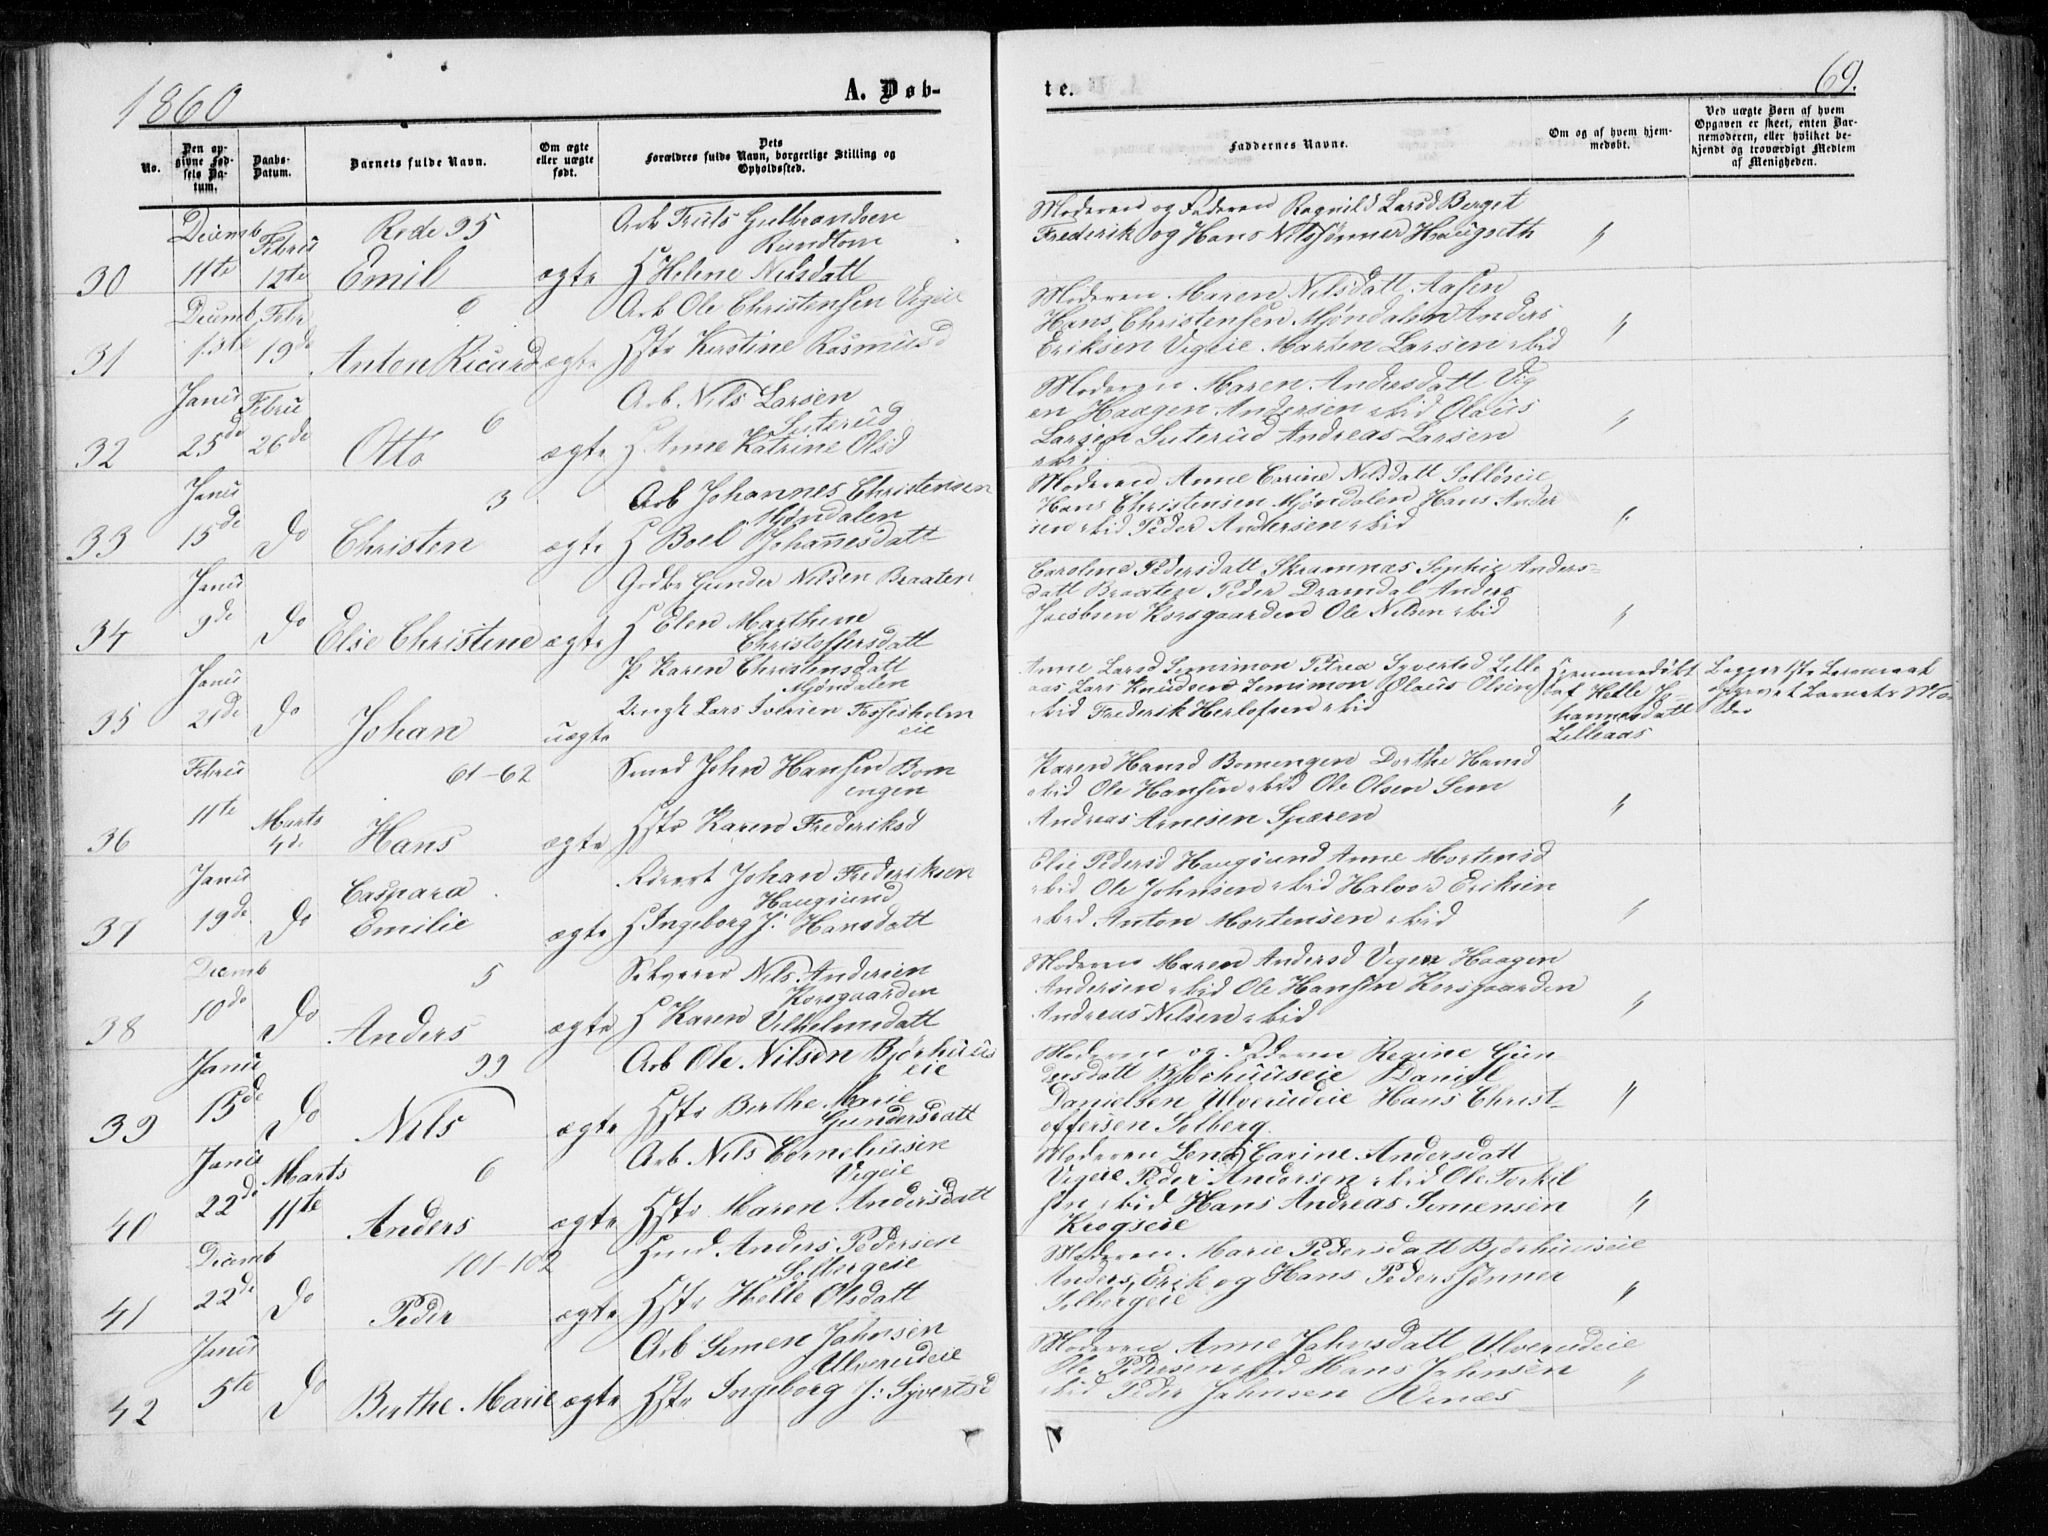 1860
A. Døb-
te.
69.
No.
Den op-
givne Fød-
sels Da-
tum.
Daabs-
Datum.
Barnets fulde Navn.
Om ægte
eller uægte
født.
Dets
Forældres fulde Navn, borgerlige Stilling og
Opholdssted.
Faddernes Navne.
Om og af hvem hjem-
medøbt.
Ved uægte Børn af hvem
Opgaven er skeet, enten Bar-
nemoderen, eller hvilket be-
kjendt og troværdigt Medlem
af Menigheden.
30
Decemb
11te
Febru
12te
Rode 95
Emil
ægte
Arb Truls Gulbrandsen
Rundtom
H Helene Nilsdatt
Moderen og Faderen Ragnild Larsd Berget
Frederik og Hans Nilssønner Haugseth
"
31
Decemb
13te
Febr
19de
6
Anton Ricard
ægte
Arb Ole Christensen Vigeie
Hstr Kirstine Rasmusd
Moderen Maren Nilsdatt Aasen
Hans Christensen Mjøndalen Anders
Eriksen Vigeie Marten Larsen ibid
"
32
Janu
25de
Febru
26de
6
Otto
ægte
Arb Nils Larsen
Suterud
H Anne Katrine Olsd
Moderen Maren Andersdatt Vig
en Haagen Andersen ibid Olaus
Larsen Suterud Andreas Larsen
ibid
"
33
Janu
15de
Do
3
Christen
ægte
Arb Johannes Christensen
Mjøndalen
H Boel Johannesdatt
Moderen Anne Carine Nilsdatt Solløseie
Hans Christensen Mjøndalen Hans Ander
sen ibid Peder Andersen ibid
"
34
Janu
9de
Do
Else Christine
ægte
Gdbr Gunder Nilsen Braaten
H Elen Marthine
Christoffersdatt
Caroline Pedersdatt Skramnæs Sophie Anders=
datt Braaten Peder Dramdal Anders
Jacobsen Korsgaarden Ole Nilsen ibid
"
35
Janu
21de
Do
Johan
uægte
P Karen Christensdatt
Mjøndalen
Ungk Lars Iversen Fossesholm
eie
Anne Larsd Semsmon Petrea Syvertsd Lille
aas Lars Knudsen Semsmon Olaus Olsen
ibid Frederik Herlofsen ibid
Hjemmedøbt
af Helle Jo-
hannesdatt
Lilleaas
36
Febru
11te
Marts
4de
61-62
Hans
ægte
Smed John Hansen Bom
engen
Hstr Karen Frederiksd
Karen Hansd Bomengen Dorthe Hansd
ibid Ole Hansen ibid Ole Olsen Sem
Andreas Arnesen Spæren
"
37
Janu
19de
Do
Caspara
Emilie
ægte
Johan Frederiksen
Haugsund
H Ingeborg J: Hansdatt
Elie Pedersd Haugsund Anne Mortensd
ibid Ole Johnsen ibid Halvor Eriksen
ibid Anton Mortensen ibid
"
38
Decemb
10de
Do
5
Anders
ægte
Nils Andersen
Korsgaarden
H Karen Vilhelmsdatt
Moderen Maren Andersd Vigen Haagen
Andersen ibid Ole Hansen Korsgaarden
Andreas Nilsen ibid
"
39
Janu
15de
Do
99
Nils
ægte
Arb Ole Nilsen Bjørhuus
eie
Hstr Berthe Marie
Gundersdatt
Moderen og Faderen Regine Gun
dersdatt Bjørhuuseie Daniel
Danielsen Ulverudeie Hans Christ-
offersen Solberg.
"
40
Janu
22de
Marts
11te
6
Anders
ægte
Arb Nils Corneliusen
Vigeie
Hstr Maren Andersdatt
Moderen Lena Carine Andersdatt
Vigeie Peder Andersen ibid Ole Torkil
sen ibid Hans Andreas Semensen
Krogseie
"
41
Decemb
22de
Do
101-102
Peder
ægte
Hmd Anders Pedersen
Solbergeie
Hstr Helle Olsdatt
Moderen Marie Pedersdatt Bjørhuuseie
Anders, Erik og Hans Pederssønner
Solbergeie
"
42
Janu
5te
Do
Berthe Marie
ægte
Arb Semen Jahnsen
Ulverudeie
Hstr Ingeborg J: Syvertsd
Moderen Anne Jahnsdatt Ulverudeie
Ole Pedersen ibid Hans Jahnsen
ibid Peder Jahnsen Renæs
"